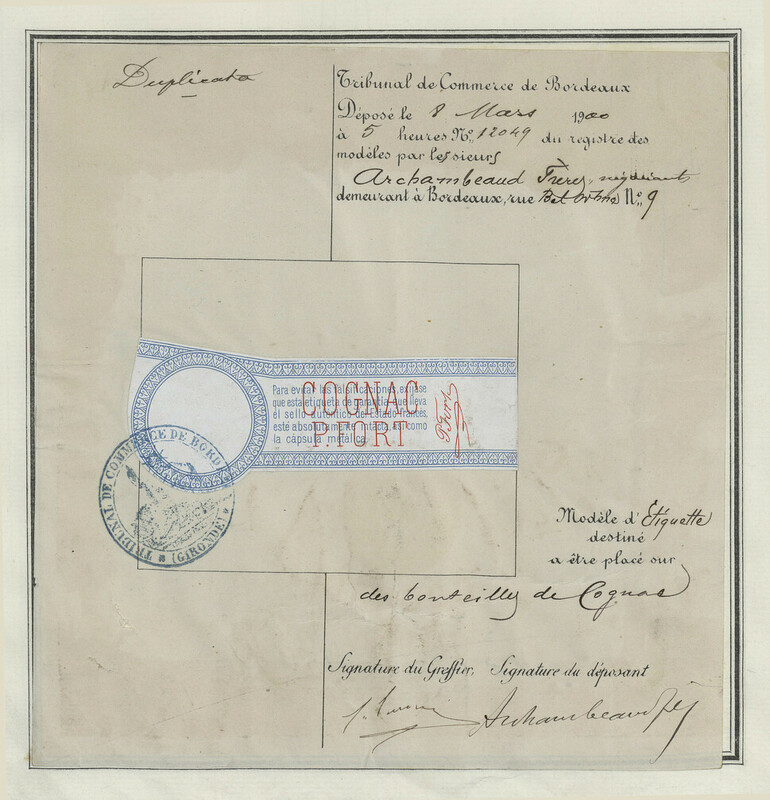 Duplicata
Tribunal de Commerce de Bordeaux
Déposé le 8 Mars 1900
à 5 heures Nº 12049 du registre des
modèles par les sieurs
Archambeaud Frères, négociants
demeurant à Bordeaux, rue Nº 9
Para evitar las falsificaciones, exíjase
que esta etiqueta de garantía que lleva
el sello autentico del Estado francés,
esté absolutamente intacta así como
la cápsula metálica.
COGNAC
P. FORT
P. Fort
TRIBUNAL DE COMMERCE DE BORD
(GIRONDE)
Modèle d'Etiquette
destiné
a être placé sur
des bouteilles de Cognac
Signature du Greffier, Signature du déposant
Archambeaud